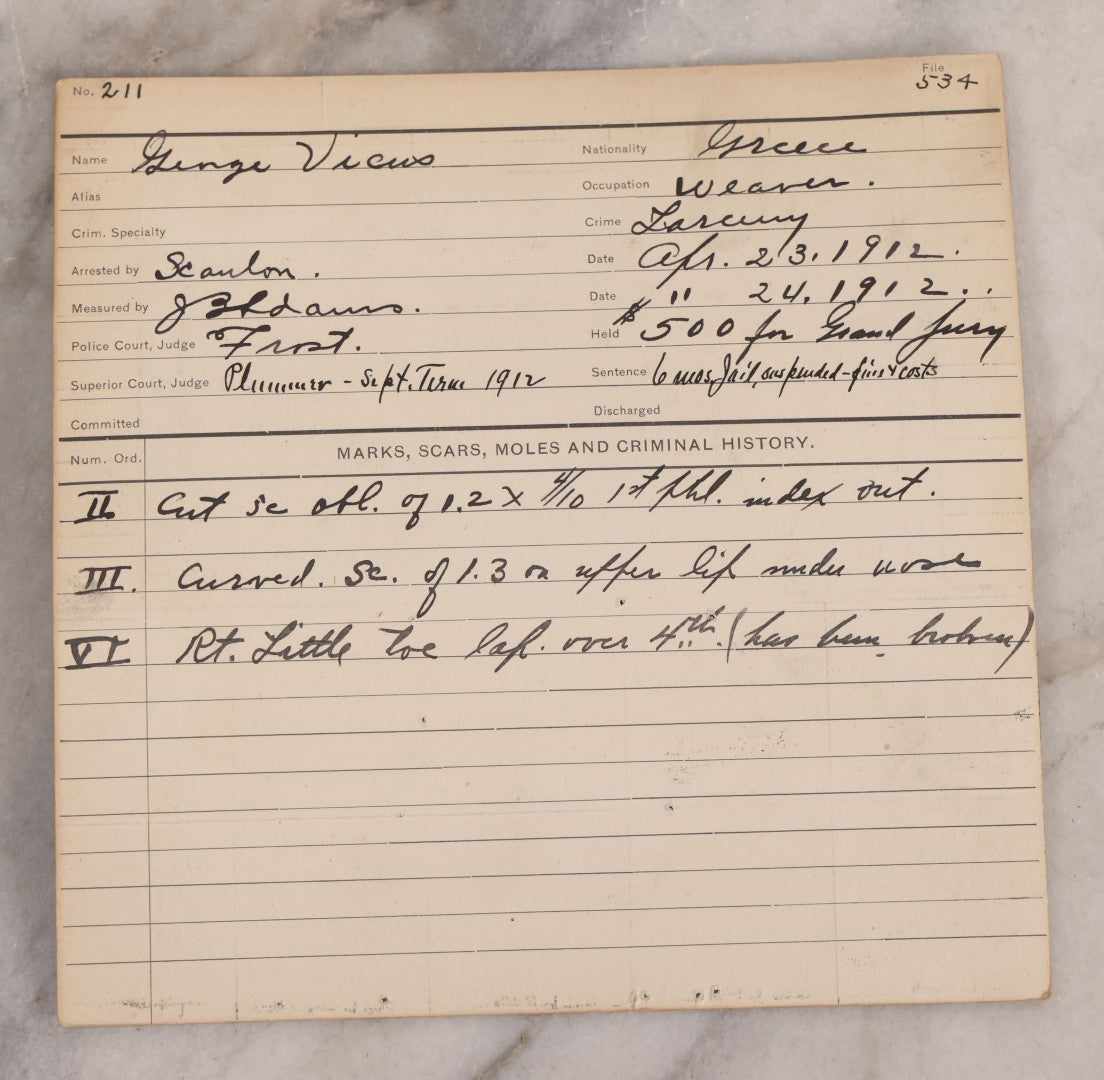 No. 211 File 534
Name George Vicus Nationality Greece
Alias Occupation Weaver.
Crim. Specialty Crime Larceny
Arrested by Scanlon. Date Apr. 23. 1912.
Measured by J B Adams. Date " 24. 1912..
Police Court, Judge Frost. Held $500 for Grand Jury
Superior Court, Judge Plummer - Sept. Term 1912 Sentence 6 mos. Jail, suspended - fine & costs
Committed Discharged
Num. Ord. MARKS, SCARS, MOLES AND CRIMINAL HISTORY.
II Cut sc obl. of 1.2 x 4/10 1st phl. index out.
III. Curved. Sc. of 1.3 on upper lip under nose
VI Rt. Little toe lap. over 4th. (has been broken)